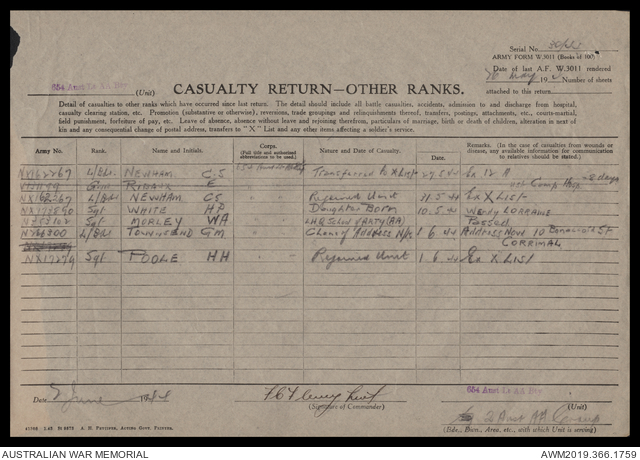 Serial No. 30/44
ARMY FORM W.3011 (Books of 100)
Date of last A.F. W.3011 rendered
May 19 Number of sheets
attached to this return
654 Aust Lt AA Bty (Unit)
CASUALTY RETURN—OTHER RANKS.
Detail of casualties to other ranks which have occurred since last return. The detail should include all battle casualties, accidents, admission to and discharge from hospital,
casualty clearing station, etc. Promotion (substantive or otherwise), reversions, trade groupings and relinquishments thereof, transfers, postings, attachments, etc., courts-martial,
field punishment, forfeiture of pay, etc. Leave of absence, absence without leave and rejoining therefrom, particulars of marriage, birth or death of children, alteration in next of
kin and any consequential change of postal address, transfers to "X" List and any other items affecting a soldier's service.
Army No. Rank. Name and Initials. Corps. (Full title and authorised abbreviations to be used.) Nature and Date of Casualty. Date. Remarks. (In the case of casualties from wounds or disease, any available information for communication to relatives should be stated.)
NX162267 L/Bdr NEWHAM CS Transferred to X List 27.5.44 Ex 12 A
Gnr E Camp Hosp days
NX162267 L/Bdr NEWHAM CS Rejoined Unit 31.5.44 Ex X List
Sgt WHITE HP Daughter Born 10.5.44 Wendy LORRAINE
Sgt MORLEY WA (AA) Passed
L/Bdr TOWNSEND GM Change of Address N/K 1 6 44 Address Now 10 St
CORRIMAL
NX17279 Sgt TOOLE HH Rejoined Unit 1.6.44 Ex X List
Date 2 June 1944
(Signature of Commander)
654 Aust Lt AA Bty (Unit)
2 Aust AA Group
(Bde., Bssn., Area, etc., with which Unit is serving)
A. H. Pettifer, Acting Govt. Printer.
AUSTRALIAN WAR MEMORIAL
AWM2019.366.1759